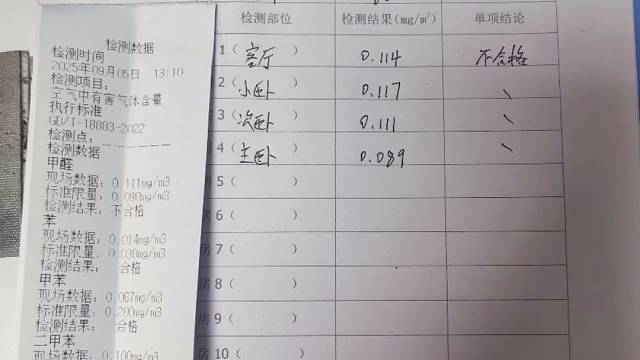 检测数据
检测时间
2025年09月05日 13:10
检测项目:
空气中有害气体含量
执行标准
GB/T-18883-2022
检测点:
检测数据
甲醛
现场数据: 0.111mg/m3
标准限量: 0.080mg/m3
检测结果: 不合格
苯
现场数据: 0.014mg/m3
标准限量: 0.030mg/m3
检测结果: 合格
甲苯
现场数据: 0.067mg/m3
标准限量: 0.200mg/m3
检测结果: 合格
二甲苯
现场数据: 0.100mg/m3
检测部位 检测结果(mg/m³) 单项结论
1 ( 客厅 ) 0.114 不合格
2 ( 小卧 ) 0.117 、
3 ( 次卧 ) 0.111 、
4 ( 主卧 ) 0.089 、
5 ( )
房 6 ( )
房 7 ( )
房 8 ( )
房 9 ( )
房 10 ( )